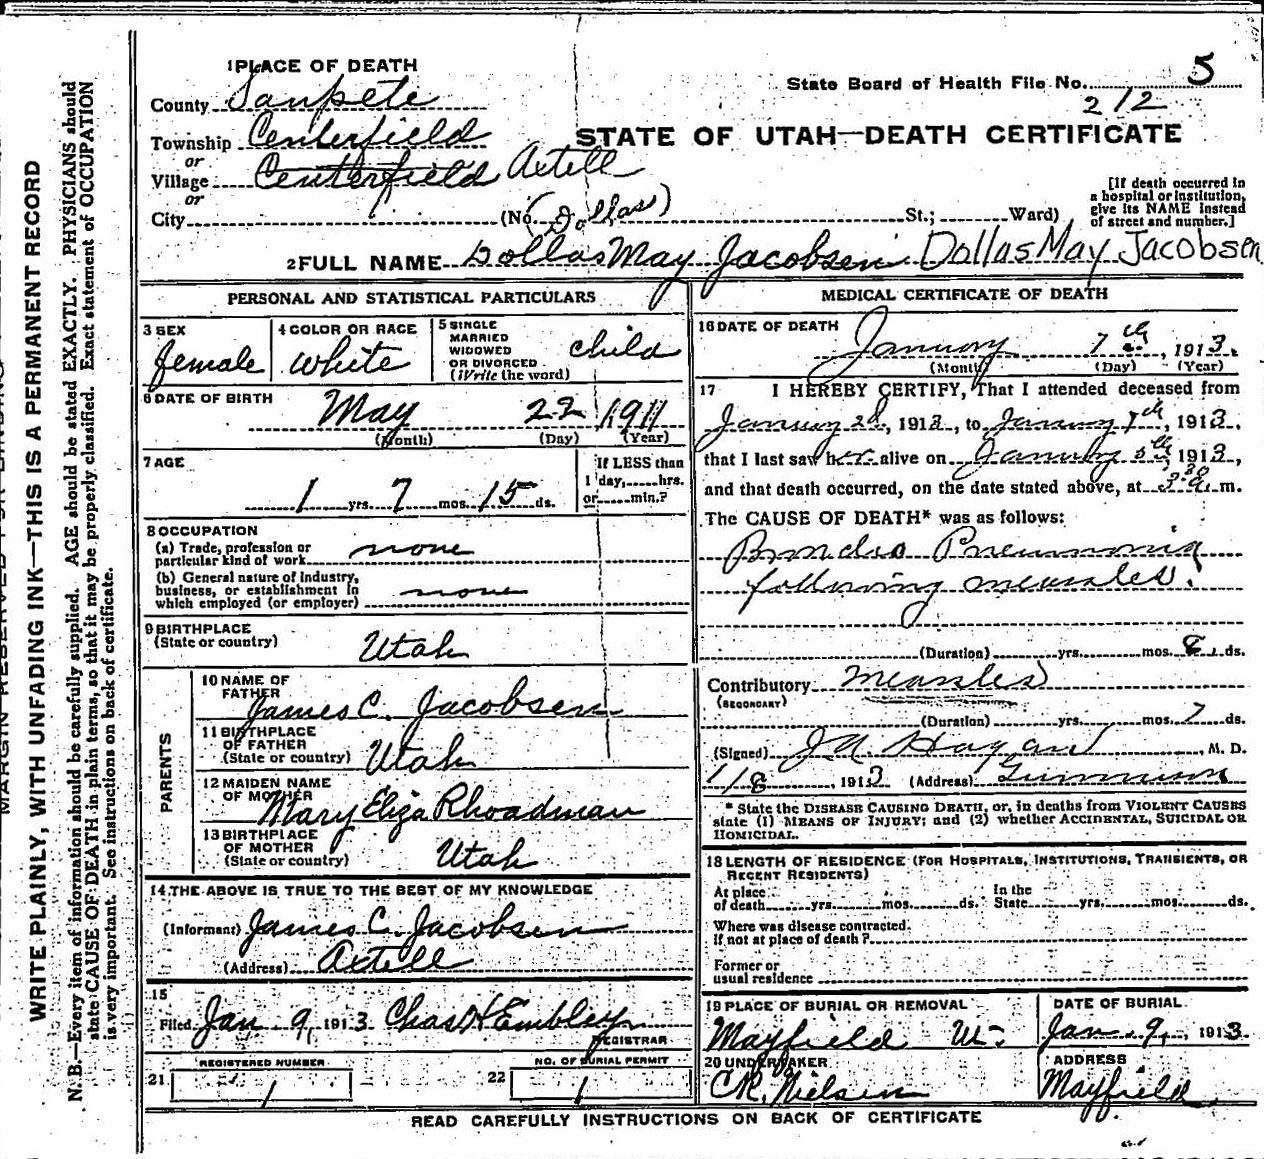 1 PLACE OF DEATH
State Board of Health File No. 5
212
County Sanpete
Township Centerfield
or
Village Centerfield Axtell
or
City (No. (Dollas) St.; Ward)
STATE OF UTAH—DEATH CERTIFICATE
[If death occurred in
a hospital or institution,
give its NAME instead
of street and number.]
2 FULL NAME Dollas May Jacobsen Dollas May Jacobsen
PERSONAL AND STATISTICAL PARTICULARS
3 SEX
female
4 COLOR OR RACE
white
5 SINGLE
MARRIED
WIDOWED
OR DIVORCED
(Write the word)
child
6 DATE OF BIRTH
May 22 1911
(Month) (Day) (Year)
7 AGE
1 yrs. 7 mos. 15 ds.
If LESS than
1 day, hrs.
or min.?
8 OCCUPATION
(a) Trade, profession or
particular kind of work none
(b) General nature of industry,
business, or establishment in
which employed (or employer) none
9 BIRTHPLACE
(State or country) Utah
PARENTS
10 NAME OF
FATHER
James C. Jacobsen
11 BIRTHPLACE
OF FATHER
(State or country) Utah
12 MAIDEN NAME
OF MOTHER
Mary Eliza Rhoadman
13 BIRTHPLACE
OF MOTHER
(State or country) Utah
14 THE ABOVE IS TRUE TO THE BEST OF MY KNOWLEDGE
(Informant) James C. Jacobsen
(Address) Axtell
15
Filed Jan. 9, 1913 Chas H Embley
REGISTRAR
REGISTERED NUMBER
21 1
NO. OF BURIAL PERMIT
22 1
MEDICAL CERTIFICATE OF DEATH
16 DATE OF DEATH
January 7th, 1913.
(Month) (Day) (Year)
17 I HEREBY CERTIFY, That I attended deceased from
January 2d, 1913, to January 7th, 1913,
that I last saw her alive on January 5th, 1913,
and that death occurred, on the date stated above, at 3:30 a. m.
The CAUSE OF DEATH* was as follows:
Broncho Pneumonia
following measles.
(Duration) yrs. mos. 6 ds.
Contributory Measles
(SECONDARY)
(Duration) yrs. mos. 7 ds.
(Signed) J.A. Hagan, M. D.
1/8, 1913 (Address) Gunnison
* State the DISEASE CAUSING DEATH, or, in deaths from VIOLENT CAUSES
state (1) MEANS OF INJURY; and (2) whether ACCIDENTAL, SUICIDAL OR
HOMICIDAL.
18 LENGTH OF RESIDENCE (FOR HOSPITALS, INSTITUTIONS, TRANSIENTS, OR
RECENT RESIDENTS)
At place
of death yrs. mos. ds.
In the
State yrs. mos. ds.
Where was disease contracted
if not at place of death?
Former or
usual residence
19 PLACE OF BURIAL OR REMOVAL
Mayfield Ut.
DATE OF BURIAL
Jan. 9, 1913
20 UNDERTAKER
C.R. Nielsen
ADDRESS
Mayfield
READ CAREFULLY INSTRUCTIONS ON BACK OF CERTIFICATE
WRITE PLAINLY, WITH UNFADING INK—THIS IS A PERMANENT RECORD
N. B.—Every item of information should be carefully supplied. AGE should be stated EXACTLY. PHYSICIANS should
state CAUSE OF DEATH in plain terms, so that it may be properly classified. Exact statement of OCCUPATION
is very important. See instructions on back of certificate.